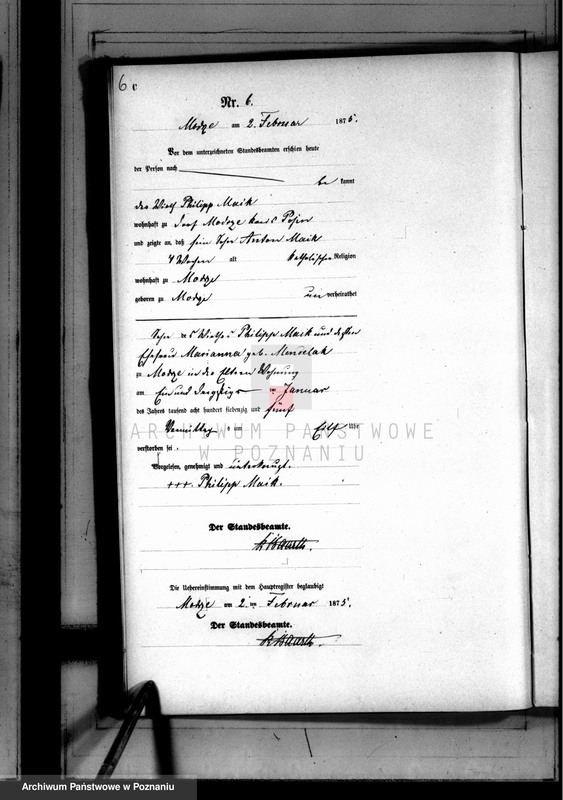 6 C
Nr. 6.
Modze am 2. Februar 1875.
Vor dem unterzeichneten Standesbeamten erschien heute
der Person nach
be kannt
der Wirth Philipp Maik
wohnhaft zu Dorf Modrze
und zeigte an, daß sein Sohn Anton Maik
4 Wochen alt katholischer Religion
wohnhaft zu Modze
geboren zu Modze un verheirathet
Sohn des Wirths Philipp Maik und dessen
Ehefrau Marianna geb.
zu Modze in der Eltern Wohnung
am Ein und dreyzigs Januar
des Jahres tausend acht hundert siebenzig und fünf
Vormittag um Elf Uhr
verstorben sei.
Vorgelesen, genehmigt und unterkreuzt.
+++ Philipp Maik.
Der Standesbeamte.
Die Uebereinstimmung mit dem Hauptregister beglaubigt
Modze am 2 ten Februar 1875.
Der Standesbeamte.
ARCHIWUM PAŃSTWOWE
W POZNANIU
Archiwum Państwowe w Poznaniu